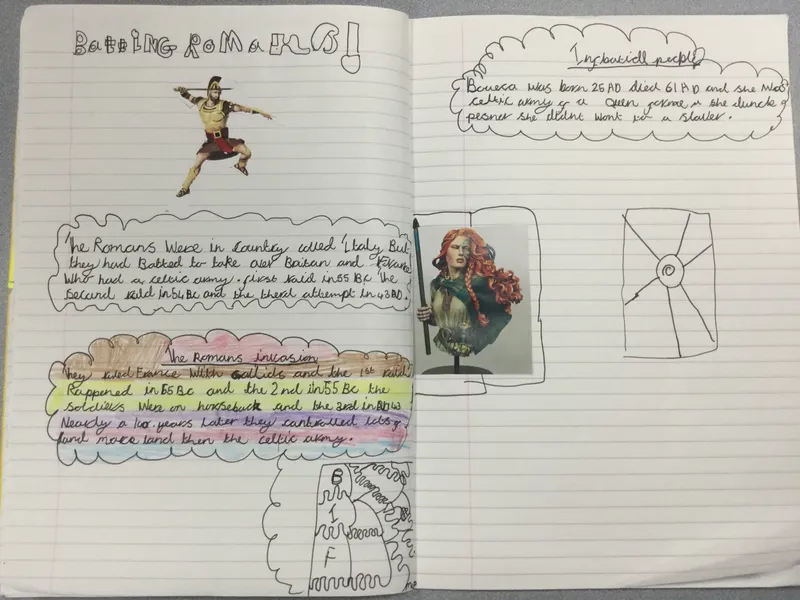 Batting Romans!
The Romans were in country called Italy But
they had Batted to take over Baitan and
Who had a celtic army. first raid in 55 Bc The
Second raid in 54 Bc and the therd attempt in 43 AD.
The Romans invasion
They ruled France with and the 1st raid
Happened in 55 Bc and the 2nd in 55 Bc the
soldiers were on horseback and the 3rd in
Nearly a 100 years later they controlled lots of
land more land then the celtic army.
B
I
F
people
was born 26 AD died 61 AD and she was
celtic army of a Quen she
she didnt wont to a